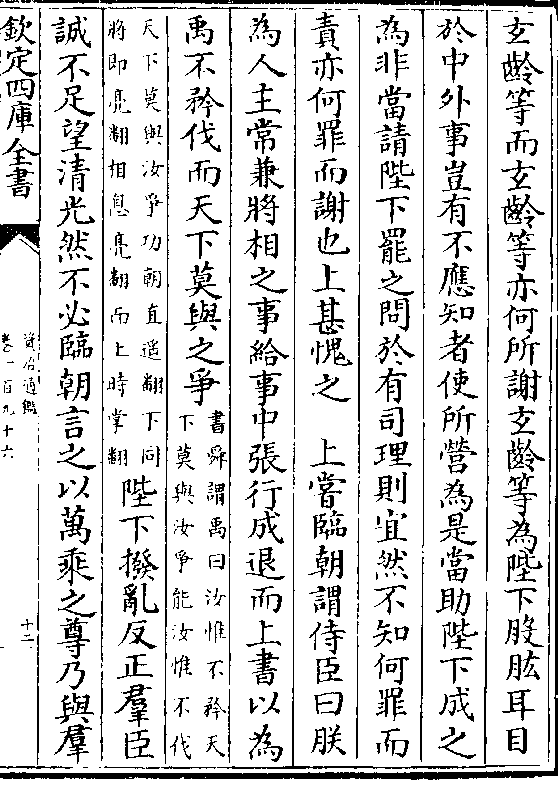 玄齡等而玄齡等亦何所謝玄齡等為陛下股肱耳目
於中外事豈有不應知者使所營為是當助陛下成之
為非當請陛下罷之問於有司理則宜然不知何罪而
責亦何罪而謝也上甚愧之　上嘗臨朝謂侍臣曰朕
為人主常兼將相之事給事中張行成退而上書以為
禹不矜伐而天下莫與之爭
書舜謂禹曰汝惟不矜天
下莫與汝爭能汝惟不伐
天下莫與汝爭功朝直遥翻下同
將即亮翻相息亮翻而上時掌翻
陛下撥亂反正羣臣
誠不足望清光然不必臨朝言之以萬乘之尊乃與羣
欽定四庫全書
資治通鑑
卷一百九十六
十二